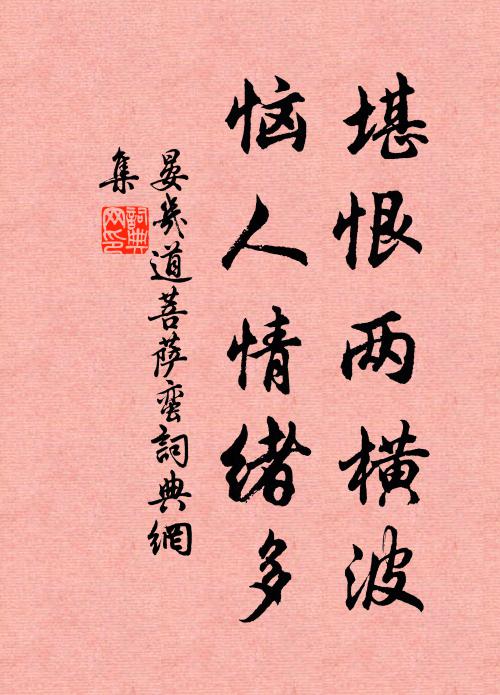 堪恨两横波
恼人情绪多
晏幾道菩萨蛮詞典網
集
詞典网印